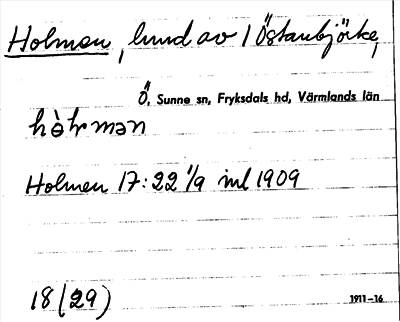 Holmen, lund av 1 Östanbjörke,
Ö, Sunne sn, Fryksdals hd, Värmlands län
hòlmən
Holmen 17:22 1/9 jnl 1909
18 (29)
1911–16